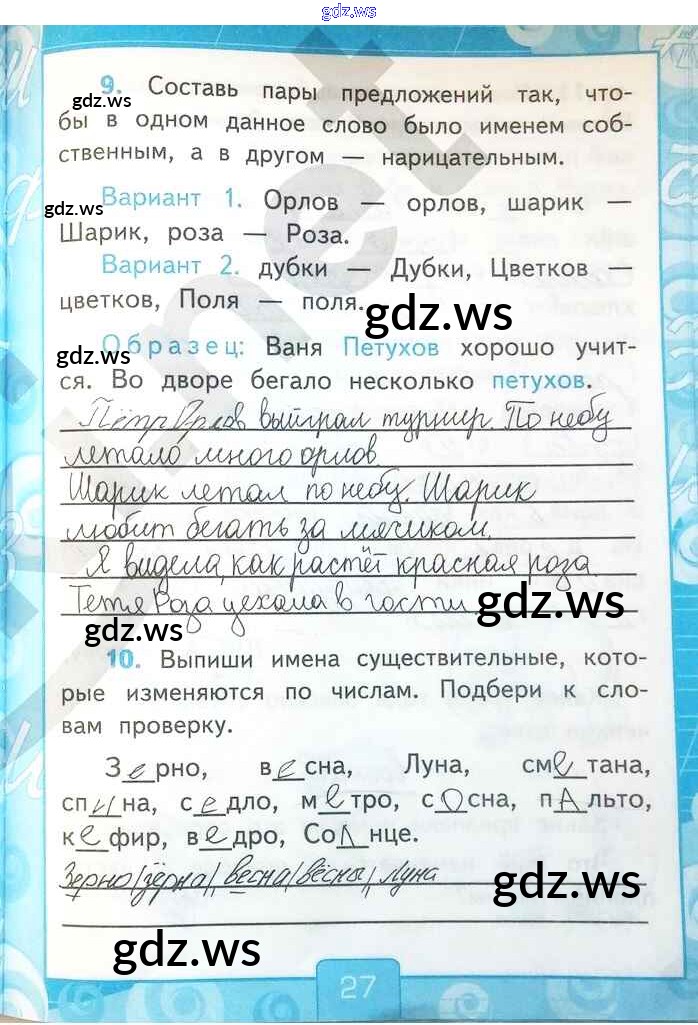 gdz.ws
9. Составь пары предложений так, что-
gdz.ws
бы в одном данное слово было именем соб-
ственным, а в другом — нарицательным.
Вариант 1. Орлов — орлов, шарик —
gdz.ws
Шарик, роза — Роза.
Вариант 2. дубки — Дубки, Цветков —
цветков, Поля — поля.
gdz.ws
Образец: Ваня Петухов хорошо учит-
gdz.ws
ся. Во дворе бегало несколько петухов.
Пётр Орлов выиграл турнир. По небу
летало много орлов.
Шарик летал по небу. Шарик
любит бегать за мячиком.
Я видела, как растёт красная роза.
Тетя Роза уехала в гости.
gdz.ws
gdz.ws
10. Выпиши имена существительные, кото-
рые изменяются по числам. Подбери к сло-
вам проверку.
Зерно, весна, Луна, сметана,
спина, седло, метро, сосна, пальто,
кефир, ведро, Солнце.
Зерно (зёрна), весна (вёсны), Луна
gdz.ws
gdz.ws
27